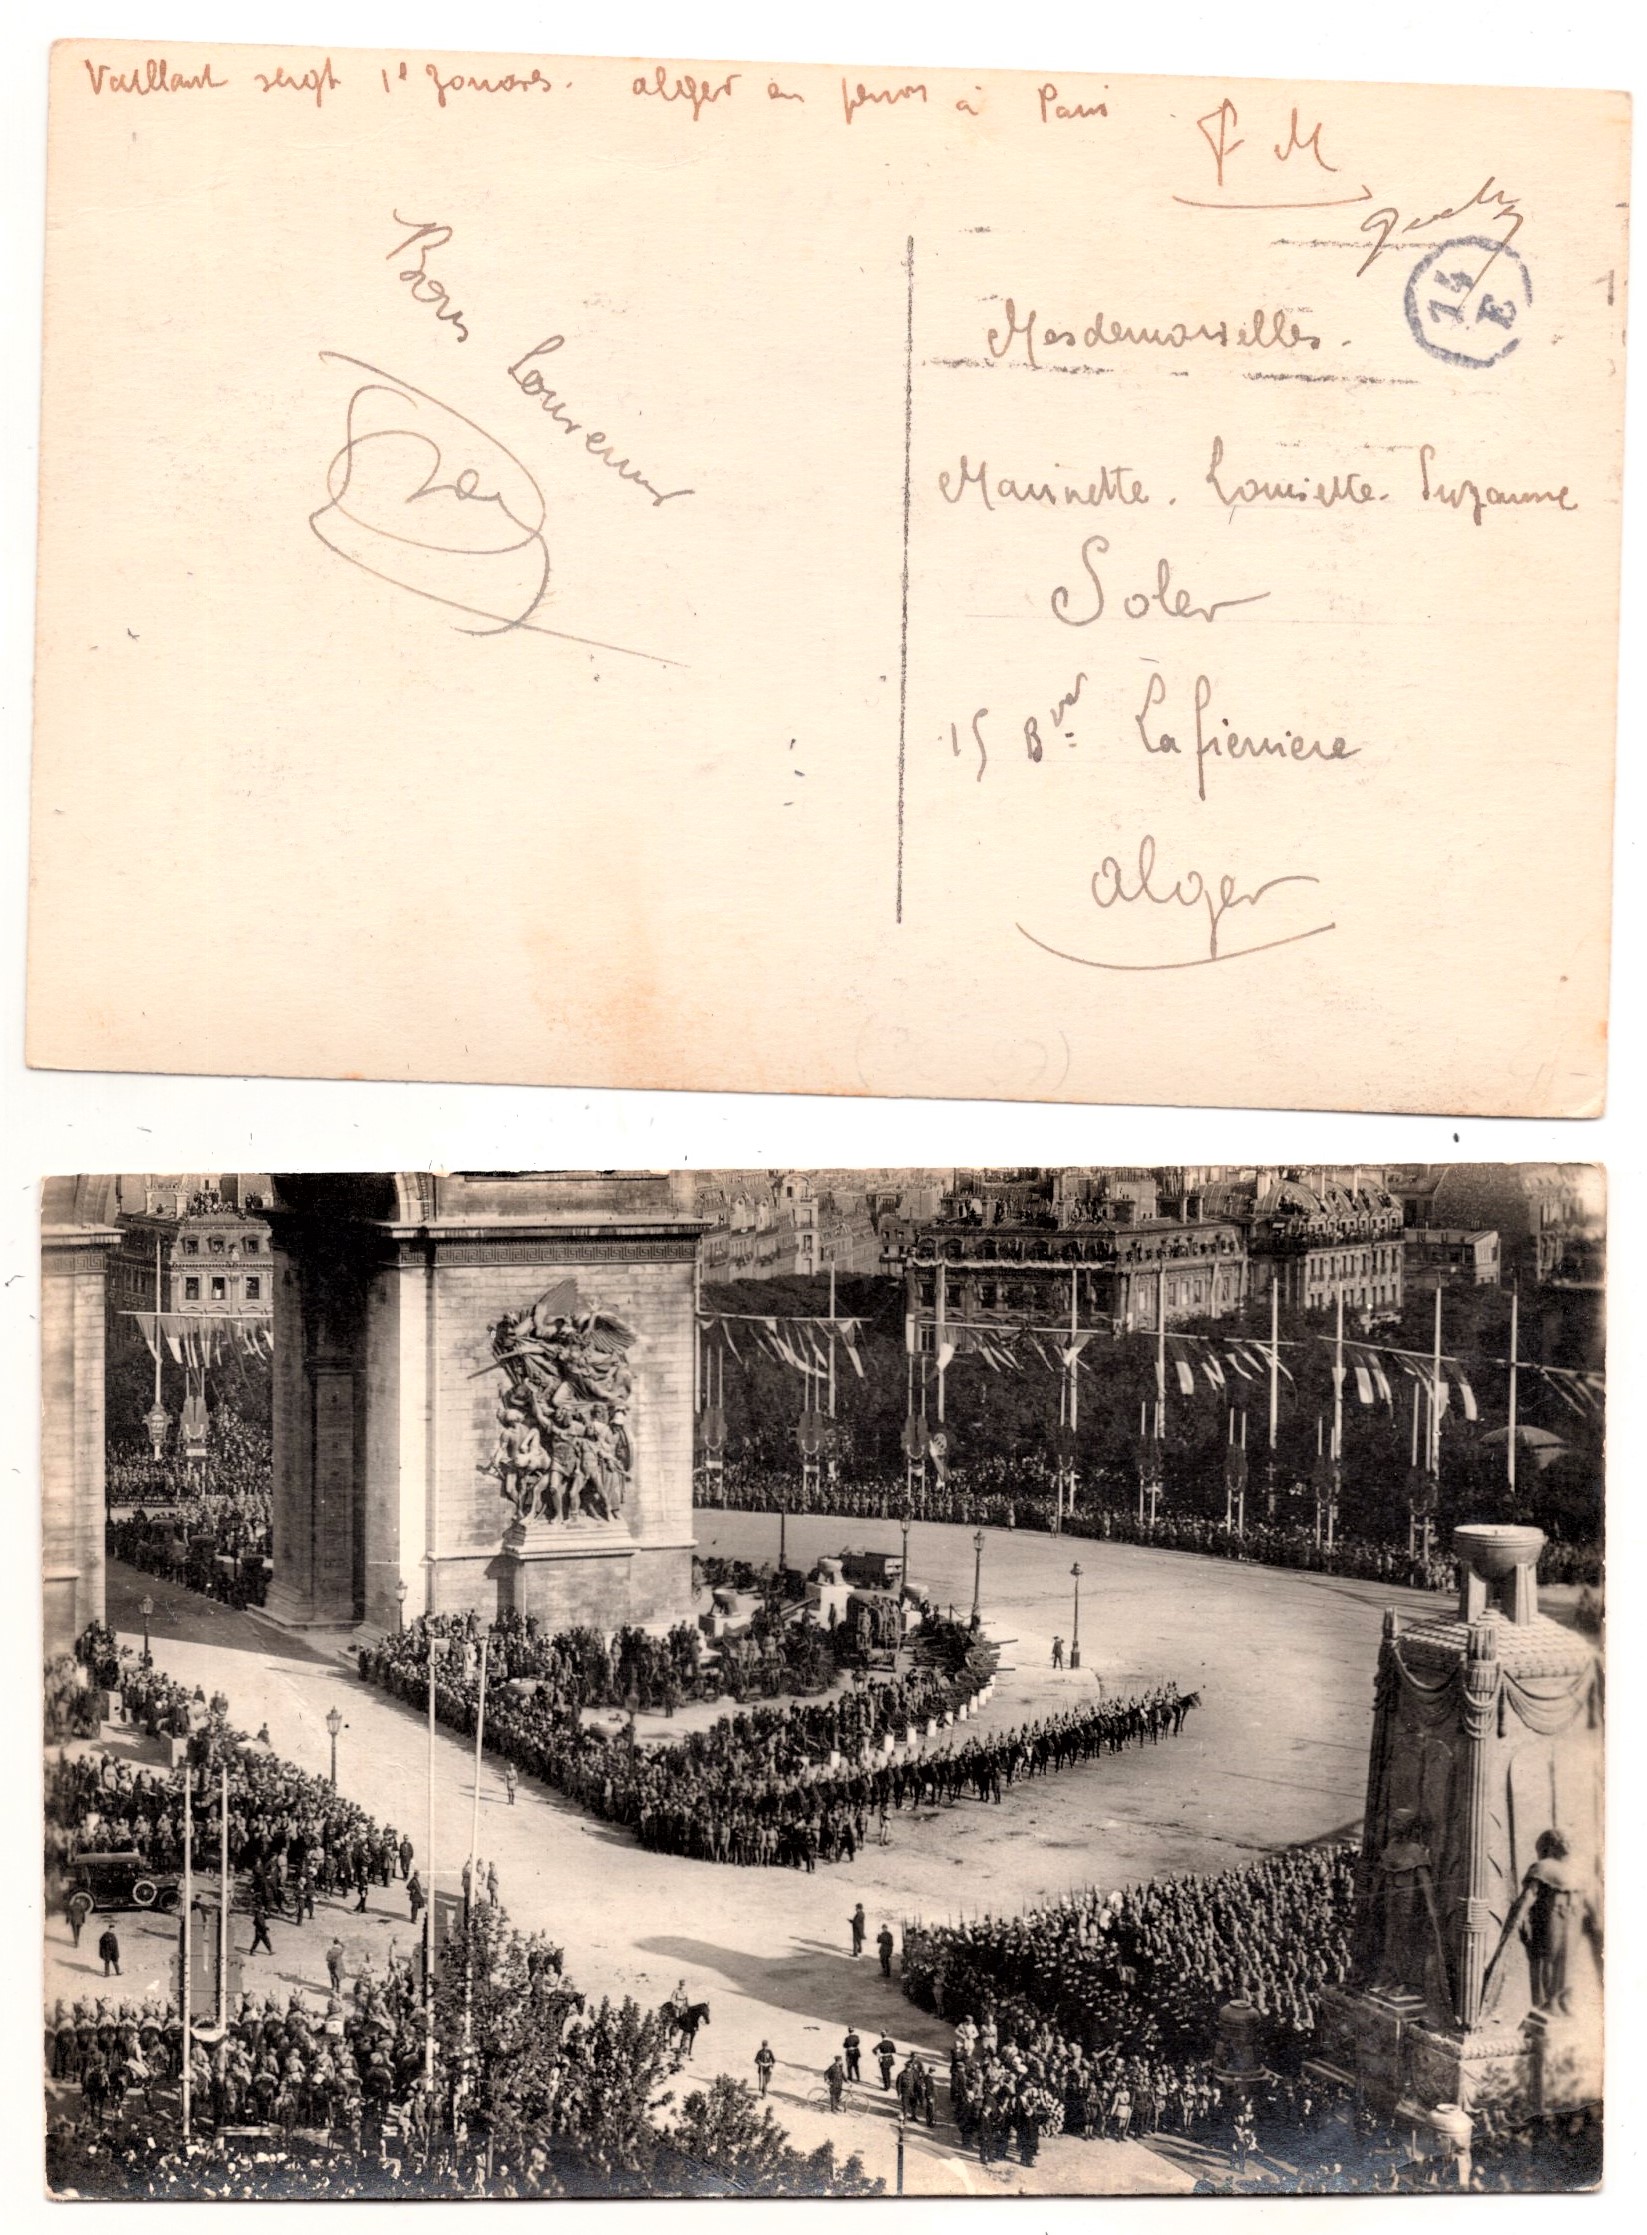 Vaillant sergt 1e zouaves. Alger en perm à Paris
F M
Bons Souvenirs
Mesdemoiselles.
Marinette. Louisette. Suzanne
Soler
15 Bvd Lafierriere
Alger